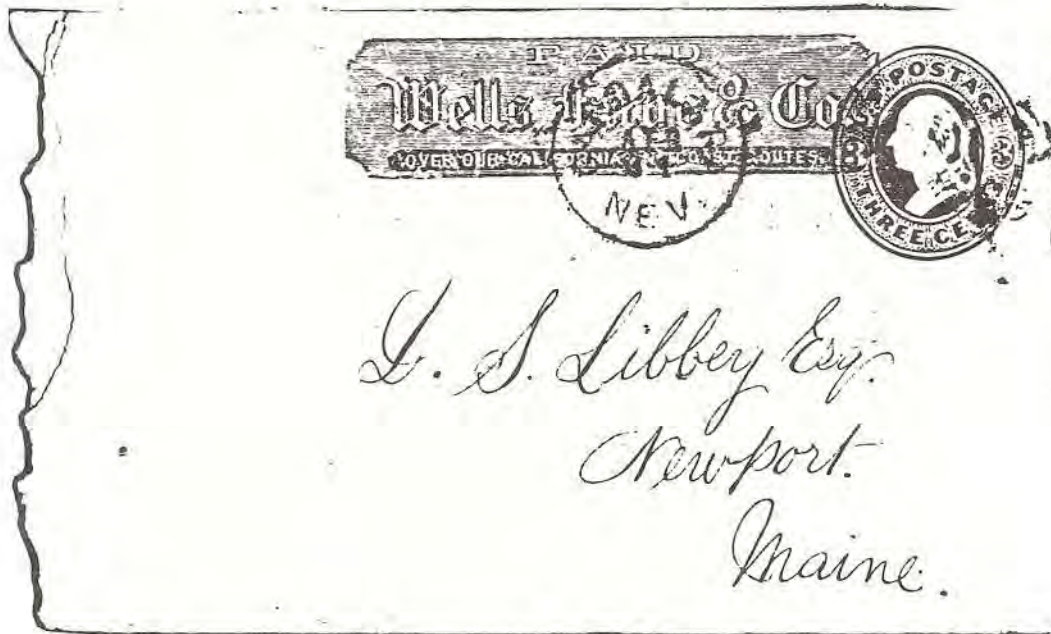 PAID
Wells Fargo & Co.
OVER OUR CALIFORNIA AND COAST ROUTES.
NEV
POSTAGE
3 3
THREE CE
L. S. Libbey Esq.
Newport.
Maine.